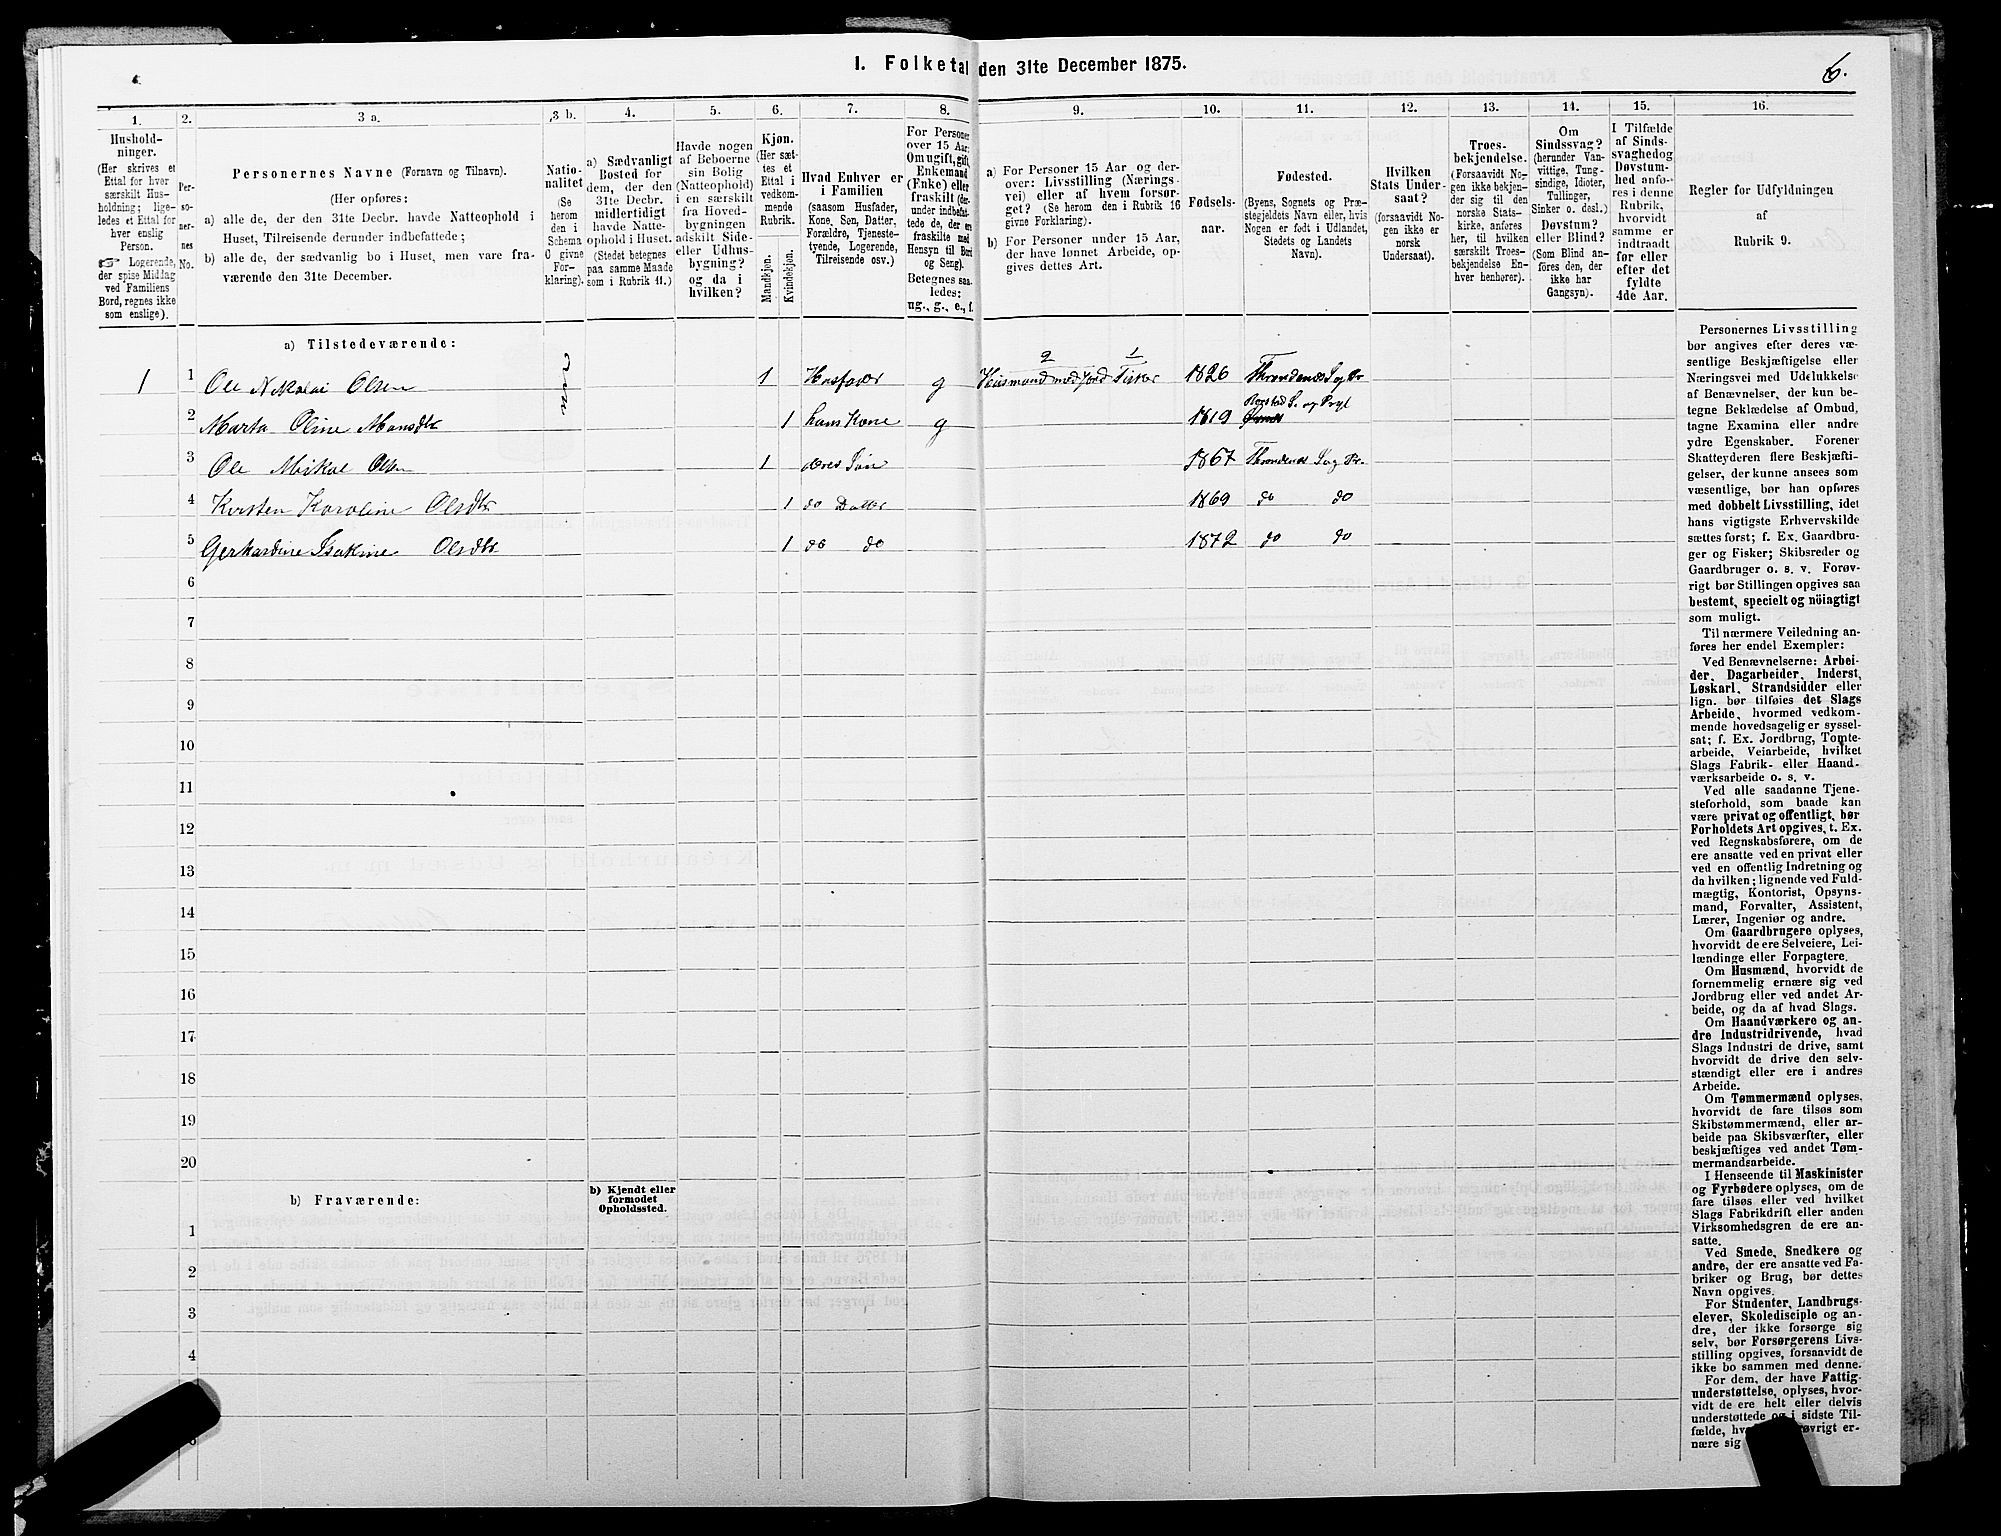 I. Folketal den 31te December 1875.
6.
1.
Hushold-
ninger.
(Her skrives et
Ettal for hver
særskilt Hus-
holdning; lige-
ledes et Ettal for
hver enslig
Person.
☞ Logerende,
der spise Middag
ved Familiens
Bord, regnes ikke
som enslige).
2.
Per-
so-
ner-
nes
No.
3 a.
Personernes Navne (Fornavn og Tilnavn).
(Her opføres:
a) alle de, der den 31te Decbr. havde Natteophold i
Huset, Tilreisende derunder indbefattede;
b) alle de, der sædvanlig bo i Huset, men vare fra-
værende den 31te December.
3 b.
Natio-
nalitet
(Se
herom
den i
Schema
O givne
For-
klaring).
4.
a) Sædvanligt
Bosted for
dem, der den
31te Decbr.
midlertidigt
havde Natte-
ophold i Huset.
(Stedet betegnes
paa samme Maade
som i Rubrik 11.)
5.
Havde nogen
af Beboerne
sin Bolig
(Natteophold)
i en særskilt
fra Hoved-
bygningen
adskilt Side-
eller Udhus-
bygning?
og da i
hvilken?
6.
Kjøn.
(Her sæt-
tes et
Ettal i
vedkom-
mende
Rubrik.
Mandkjøn.
Kvindekjøn.
7.
Hvad Enhver er
i Familien
(saasom Husfader,
Kone, Søn, Datter,
Forældre, Tjeneste-
tyende, Logerende,
Tilreisende osv.)
8.
For Personer
over 15 Aar:
Om ugift, gift,
Enkemand
(Enke) eller
fraskilt (der-
under indbefat-
tede de, der ere
fraskilte med
Hensyn til Bord
og Seng).
Betegnes saa-
ledes:
ug., g., e., f.
9.
a) For Personer 15 Aar og der-
over: Livsstilling (Nærings-
vei) eller af hvem forsør-
get? (Se herom den i Rubrik 16
givne Forklaring).
b) For Personer under 15 Aar,
der have lønnet Arbeide, op-
gives dettes Art.
10.
Fødsels-
aar.
11.
Fødested.
(Byens, Sognets og Præ-
stegjeldets Navn eller, hvis
Nogen er født i Udlandet,
Stedets og Landets
Navn).
12.
Hvilken
Stats Under-
saat?
(forsaavidt No-
gen ikke er
norsk
Undersaat).
13.
Troes-
bekjendelse.
(Forsaavidt No-
gen ikke bekjen-
der sig til den
norske Stats-
kirke, anføres
her, til hvilken
særskilt Troes-
bekjendelse En-
hver henhører).
14.
Om
Sindssvag?
(herunder Van-
vittige, Tung-
sindige, Idioter,
Tullinger,
Sinker o. desl.)
Døvstum?
eller Blind?
(Som Blind an-
føres den, der
ikke har
Gangsyn).
15.
I Tilfælde
af Sinds-
svaghed og
Døvstum-
hed anfø-
res i denne
Rubrik,
hvorvidt
samme er
indtraadt
før eller
efter det
fyldte
4de Aar.
16.
Regler for Udfyldningen
af
Rubrik 9.
a) Tilstedeværende:
1 1 Ole Nikolai Olsen 1 Husfader g 2 1 Husmand med Jord Fisker 1826 Throndenæs S og Pr
2 Marta Oline Monsdtr 1 hans Kone g 1819 S. og Prgl
3 Ole Mikal Olsen 1 deres Søn 1867 Throndenæs S og Pr.
4 Kirsten Karoline Olsdtr 1 do Datter 1869 do do
5 Gerhardine Isakine Olsdtr 1 do do 1872 do do
6
7
8
9
10
11
12
13
14
15
16
17
18
19
20
b) Fraværende:
b) Kjendt eller
formodet
Opholdssted.
1
2
3
4
Personernes Livsstilling
bør angives efter deres væ-
sentlige Beskjæftigelse eller
Næringsvei med Udelukkelse
af Benævnelser, der kun be-
tegne Beklædelse af Ombud,
tagne Examina eller andre
ydre Egenskaber. Forener
Skatteyderen flere Beskjæfti-
gelser, der kunne ansees som
væsentlige, bør han opføres
med dobbelt Livsstilling, idet
hans vigtigste Erhvervskilde
sættes først; f. Ex. Gaardbru-
ger og Fisker; Skibsreder og
Gaardbruger o. s. v. Forøv-
rigt bør Stillingen opgives saa
bestemt, specielt og nöiagtigt
som muligt.
Til nærmere Veiledning an-
føres her endel Exempler:
Ved Benævnelserne: Arbei-
der, Dagarbeider, Inderst,
Løskarl, Strandsidder eller
lign. bør tilføies det Slags
Arbeide, hvormed vedkom-
mende hovedsagelig er syssel-
sat; f. Ex. Jordbrug, Tomte-
arbeide, Veiarbeide, hvilket
Slags Fabrik- eller Haand-
værksarbeide o. s. v.
Ved alle saadanne Tjene-
steforhold, som baade kan
være privat og offentligt, bør
Forholdets Art opgives, t. Ex.
ved Regnskabsførere, om de
ere ansatte ved en privat eller
ved en offentlig Indretning og
da hvilken; lignende ved Fuld-
mægtig, Kontorist, Opsyns-
mand, Forvalter, Assistent,
Lærer, Ingeniør og andre.
Om Gaardbrugere oplyses,
hvorvidt de ere Selveiere, Lei-
lændinge eller Forpagtere.
Om Husmænd, hvorvidt de
fornemmelig ernære sig ved
Jordbrug eller ved andet Ar-
beide, og da af hvad Slags.
Om Haandværkere og an-
dre Industridrivende, hvad
Slags Industri de drive, samt
hvorvidt de drive den selv-
stændigt eller ere i andres
Arbeide.
Om Tømmermænd oplyses,
hvorvidt de fare tilsøs som
Skibstømmermænd, eller ar-
beide paa Skibsværfter, eller
beskjæftiges ved andet Tøm-
mermandsarbeide.
I Henseende til Maskinister
og Fyrbødere oplyses, om de
fare tilsøs eller ved hvilket
Slags Fabrikdrift eller anden
Virksomhedsgren de ere an-
satte.
Ved Smede, Snedkere og
andre, der ere ansatte ved Fa-
briker og Brug, bør dettes
Navn opgives.
For Studenter, Landbrugs-
elever, Skoledisciple og an-
dre, der ikke forsørge sig
selv, bør Forsørgerens Livs-
stilling opgives, forsaavidt de
ikke bo sammen med denne.
For dem, der have Fattig-
understøttelse, oplyses, hvor-
vidt de ere helt eller delvis
understøttede og i sidste Til-
fælde, øvrigt er-
nære sig